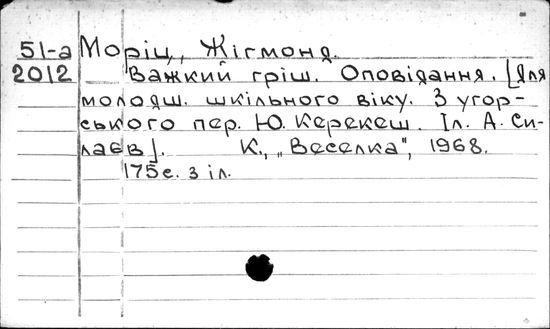 51-а Моріц, Жігмонд.
2012 Важкий гріш. Оповідання. [Для
молодш. шкільного віку. З угор-
ського пер. Ю. Керекеш. Іл. А. Си-
лаєв]. К., „Веселка", 1968.
175 с. з іл.